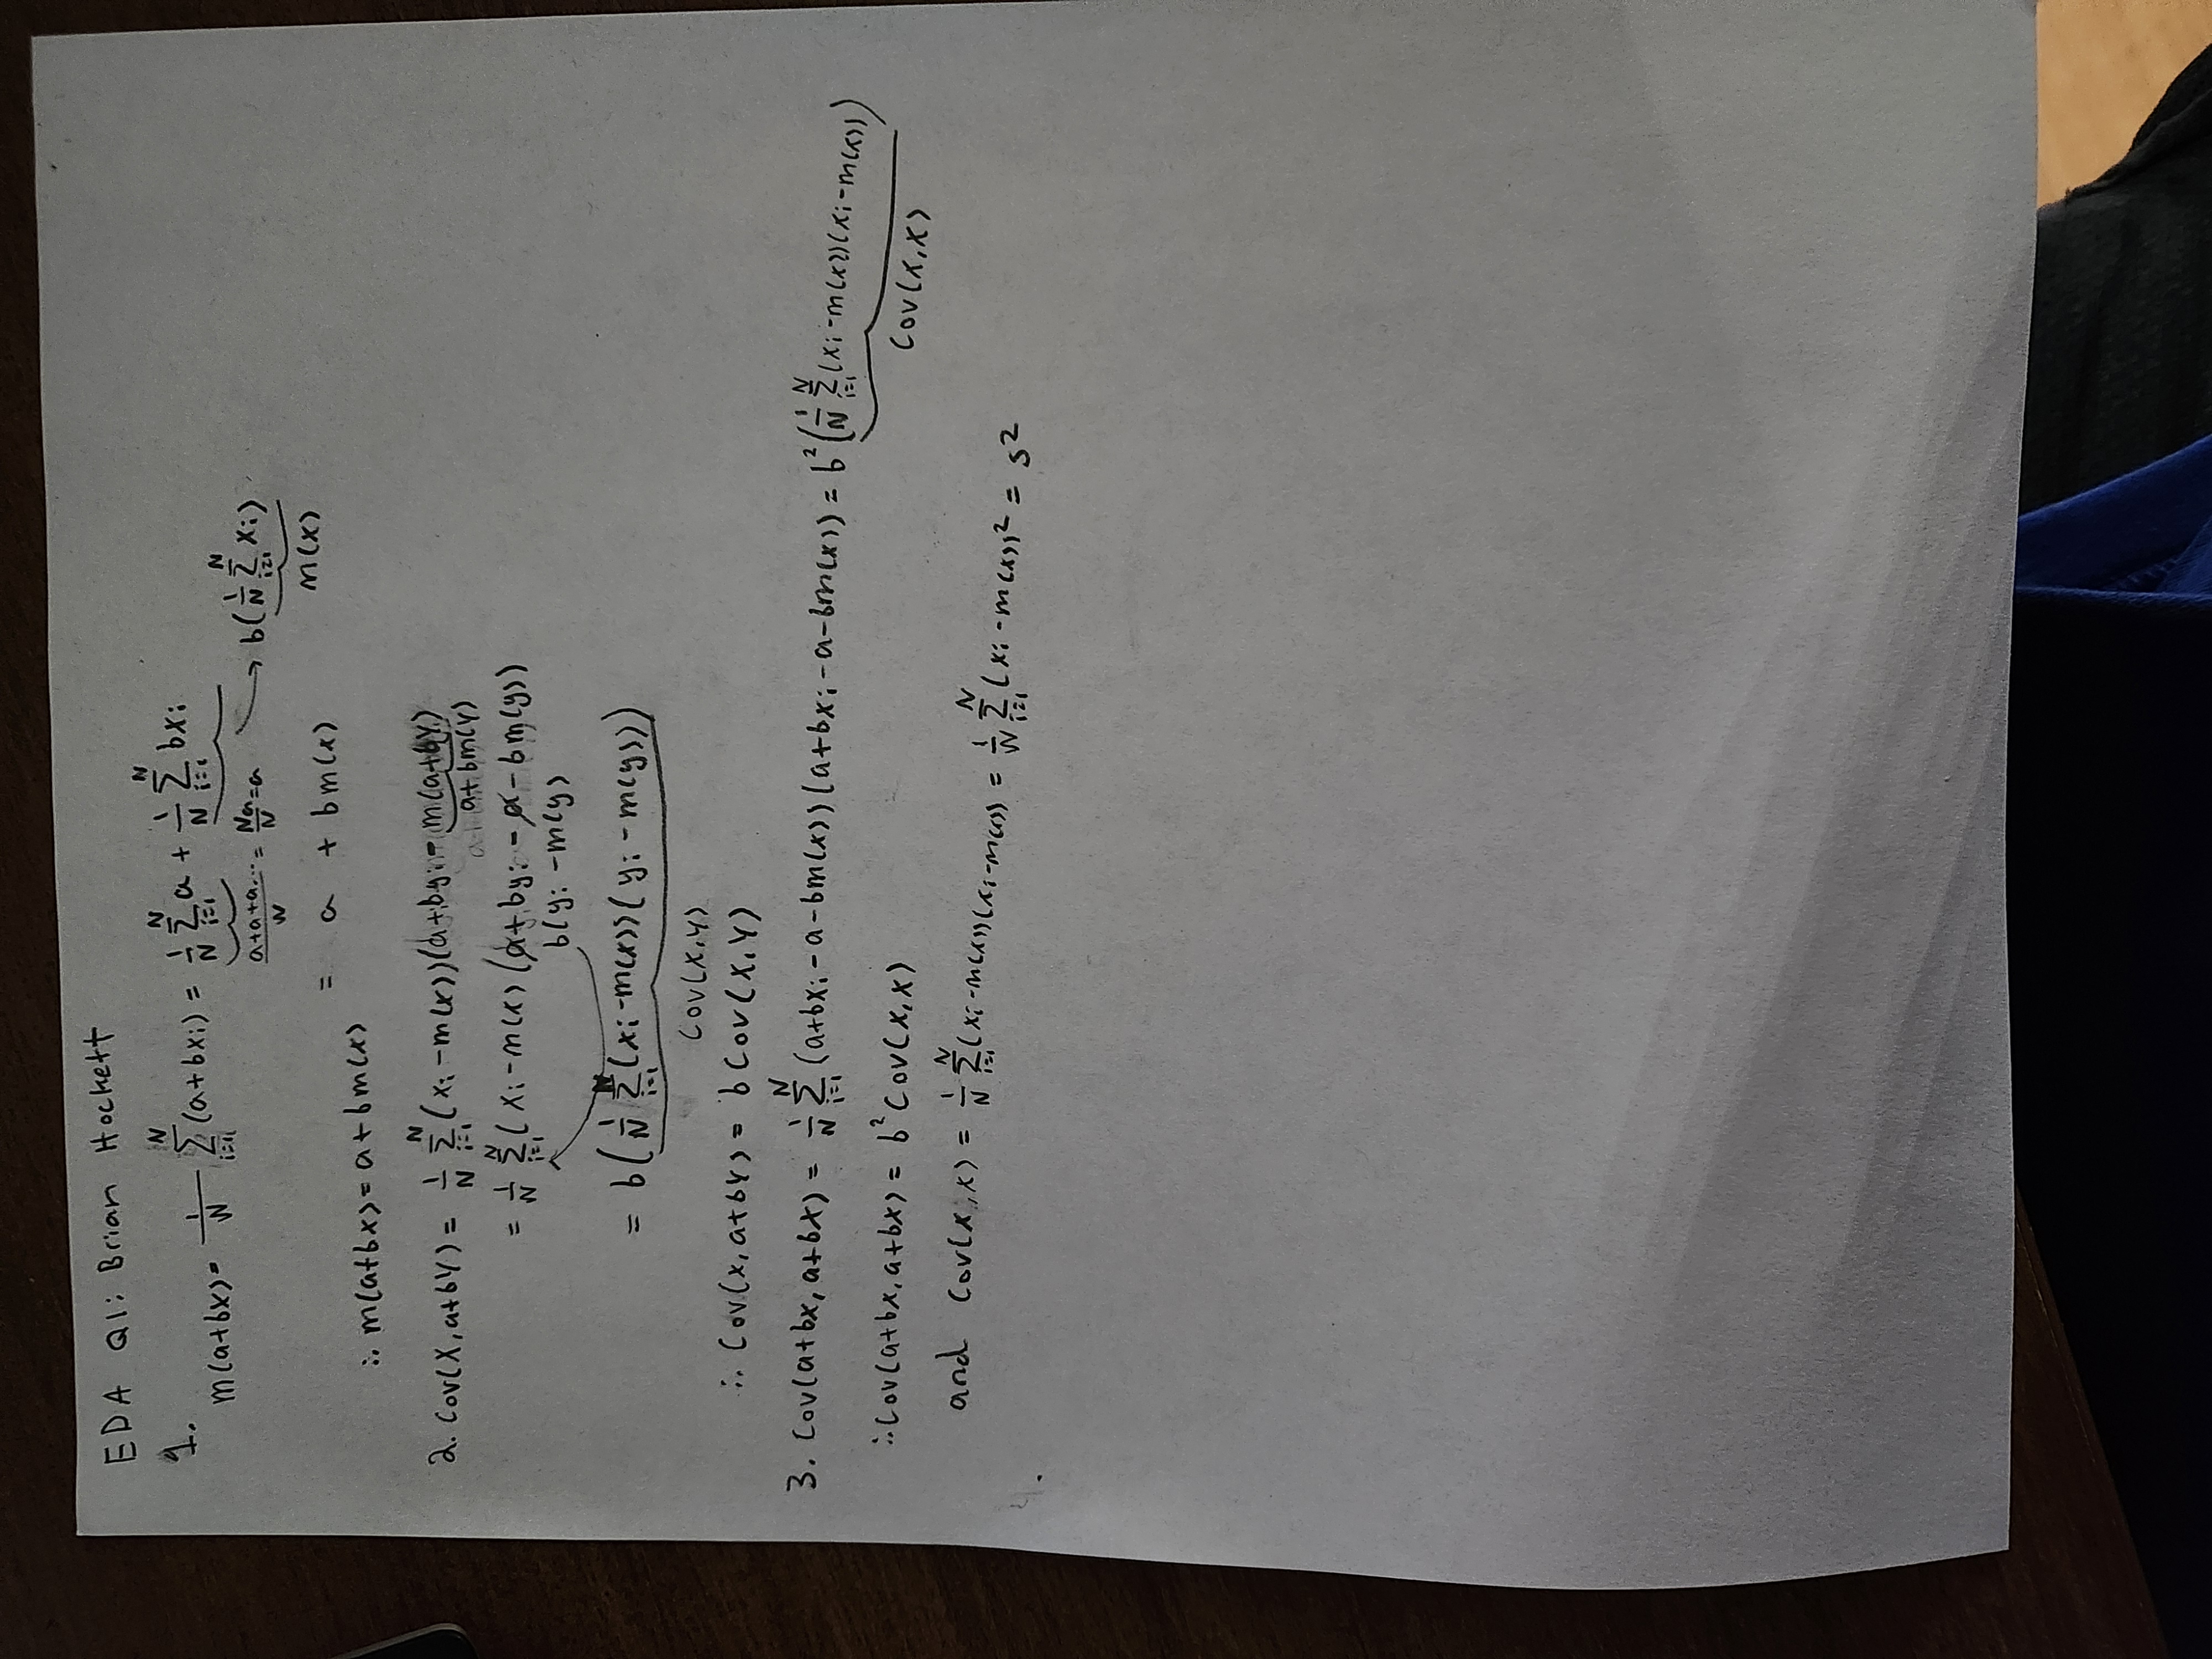 EDA Q1: Brian Hockett
1.
m(a+bx) = 1/N Σ_{i=1}^{N} (a+bxi) = 1/N Σ_{i=1}^{N} a + 1/N Σ_{i=1}^{N} bxi
(a+a+a...)/N = Na/N = a → b(1/N Σ_{i=1}^{N} xi)
m(x)
= a + bm(x)
∴ m(a+bx) = a+bm(x)
2. Cov(X, a+bY) = 1/N Σ_{i=1}^{N} (xi - m(x))(a+byi - m(a+bY)
a+bm(Y)
= 1/N Σ_{i=1}^{N} (xi - m(x) (a+byi - a - bm(y))
b(yi - m(y)
= b(1/N Σ_{i=1}^{N} (xi - m(x))(yi - m(y)))
Cov(X,Y)
∴ Cov(x, a+bY) = b Cov(X,Y)
3. Cov(a+bx, a+bx) = 1/N Σ_{i=1}^{N} (a+bxi - a - bm(x))(a+bxi - a - bm(x)) = b²(1/N Σ_{i=1}^{N} (xi - m(x))(xi - m(x)))
Cov(x,x)
∴ Cov(a+bx, a+bx) = b² Cov(x,x)
and Cov(x,x) = 1/N Σ_{i=1}^{N} (xi - m(x))(xi - m(x)) = 1/N Σ_{i=1}^{N} (xi - m(x))² = s²